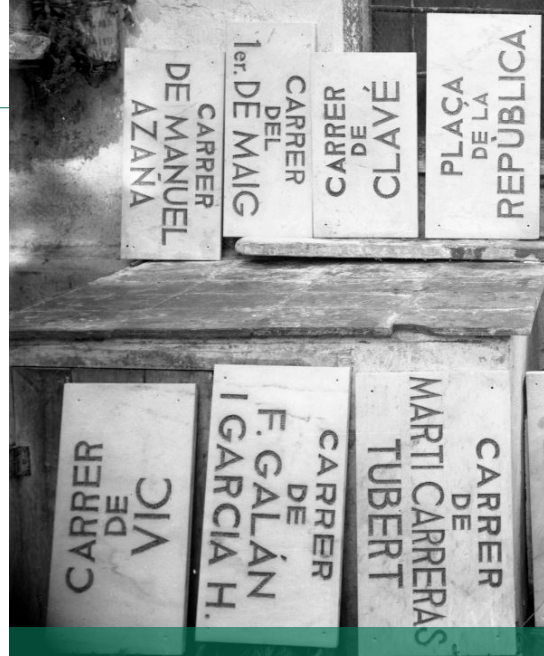 CARRER
DE MANUEL
AZAÑA
CARRER
DEL
1er. DE MAIG
CARRER
DE
CLAVÉ
PLAÇA
DE LA
REPÚBLICA
CARRER
DE
VIC
CARRER
DE
F. GALÁN
I GARCIA H.
CARRER
DE
MARTI CARRERAS
TUBERT